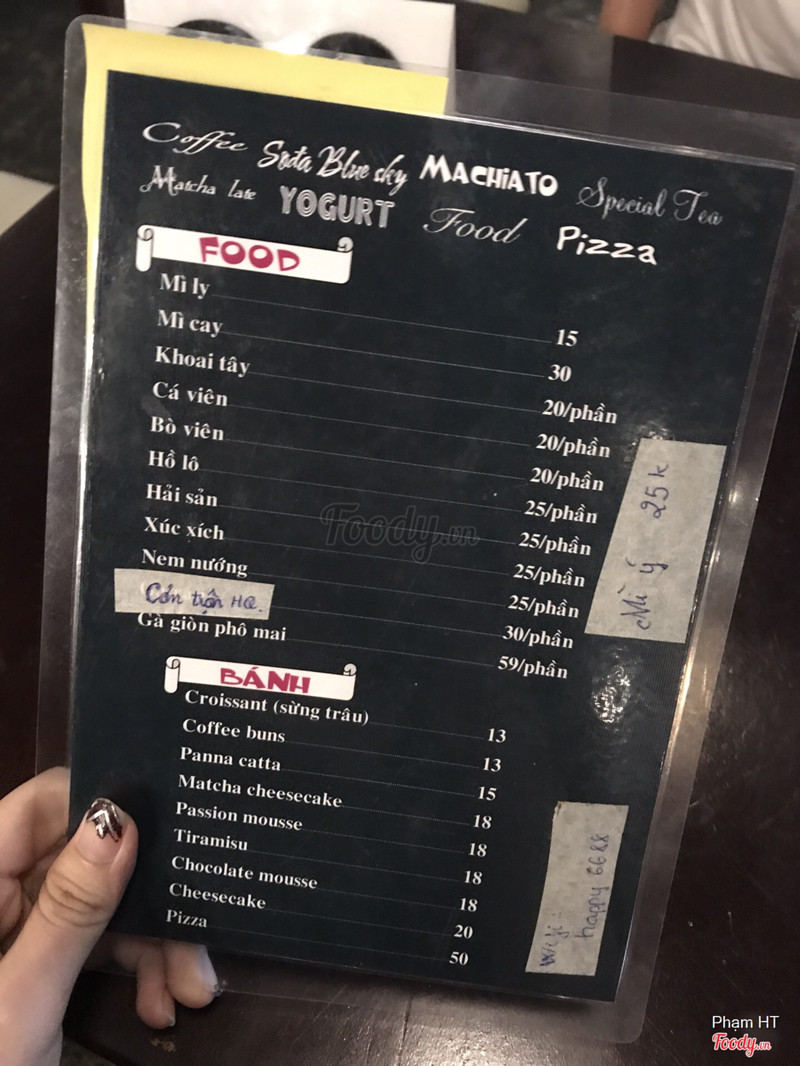 Coffee Soda Blue sky MACHiATO Special Tea
Matcha late YOGURT Food Pizza
FOOD
Mì ly 15
Mì cay 30
Khoai tây 20/phần
Cá viên 20/phần
Bò viên 20/phần
Hồ lô 25/phần
Hải sản 25/phần
Xúc xích 25/phần
Nem nướng 25/phần
Cơm trộn HQ. 30/phần
Gà giòn phô mai 59/phần
Mì ý 25k
BÁNH
Croissant (sừng trâu) 13
Coffee buns 13
Panna catta 15
Matcha cheesecake 18
Passion mousse 18
Tiramisu 18
Chocolate mousse 18
Cheesecake 20
Pizza 50
happy 6688
Foody.vn
Phạm HT
Foody.vn